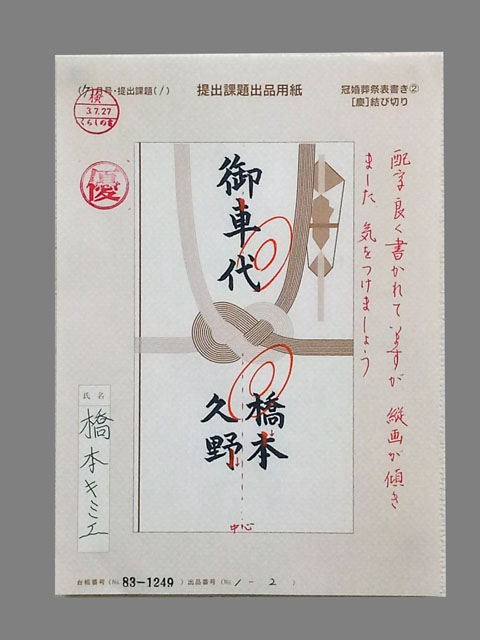 (7)月号・提出課題(1)
提出課題出品用紙
冠婚葬祭表書き②
[慶]結び切り
3.7.27
くらしの書
優
配字良く書かれていますが 縦画が傾き
ました 気をつけましょう
御車代
橋本
久野
中心
氏名
橋本キミエ
台帳番号(No.83-1249)出品番号(No.1-2)